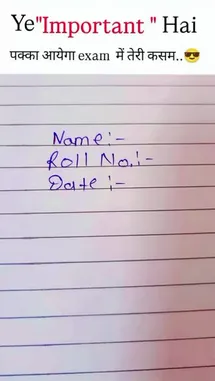 Ye"Important " Hai
पक्का आयेगा exam में तेरी कसम..😎
Name:-
Roll No.:-
Date:-